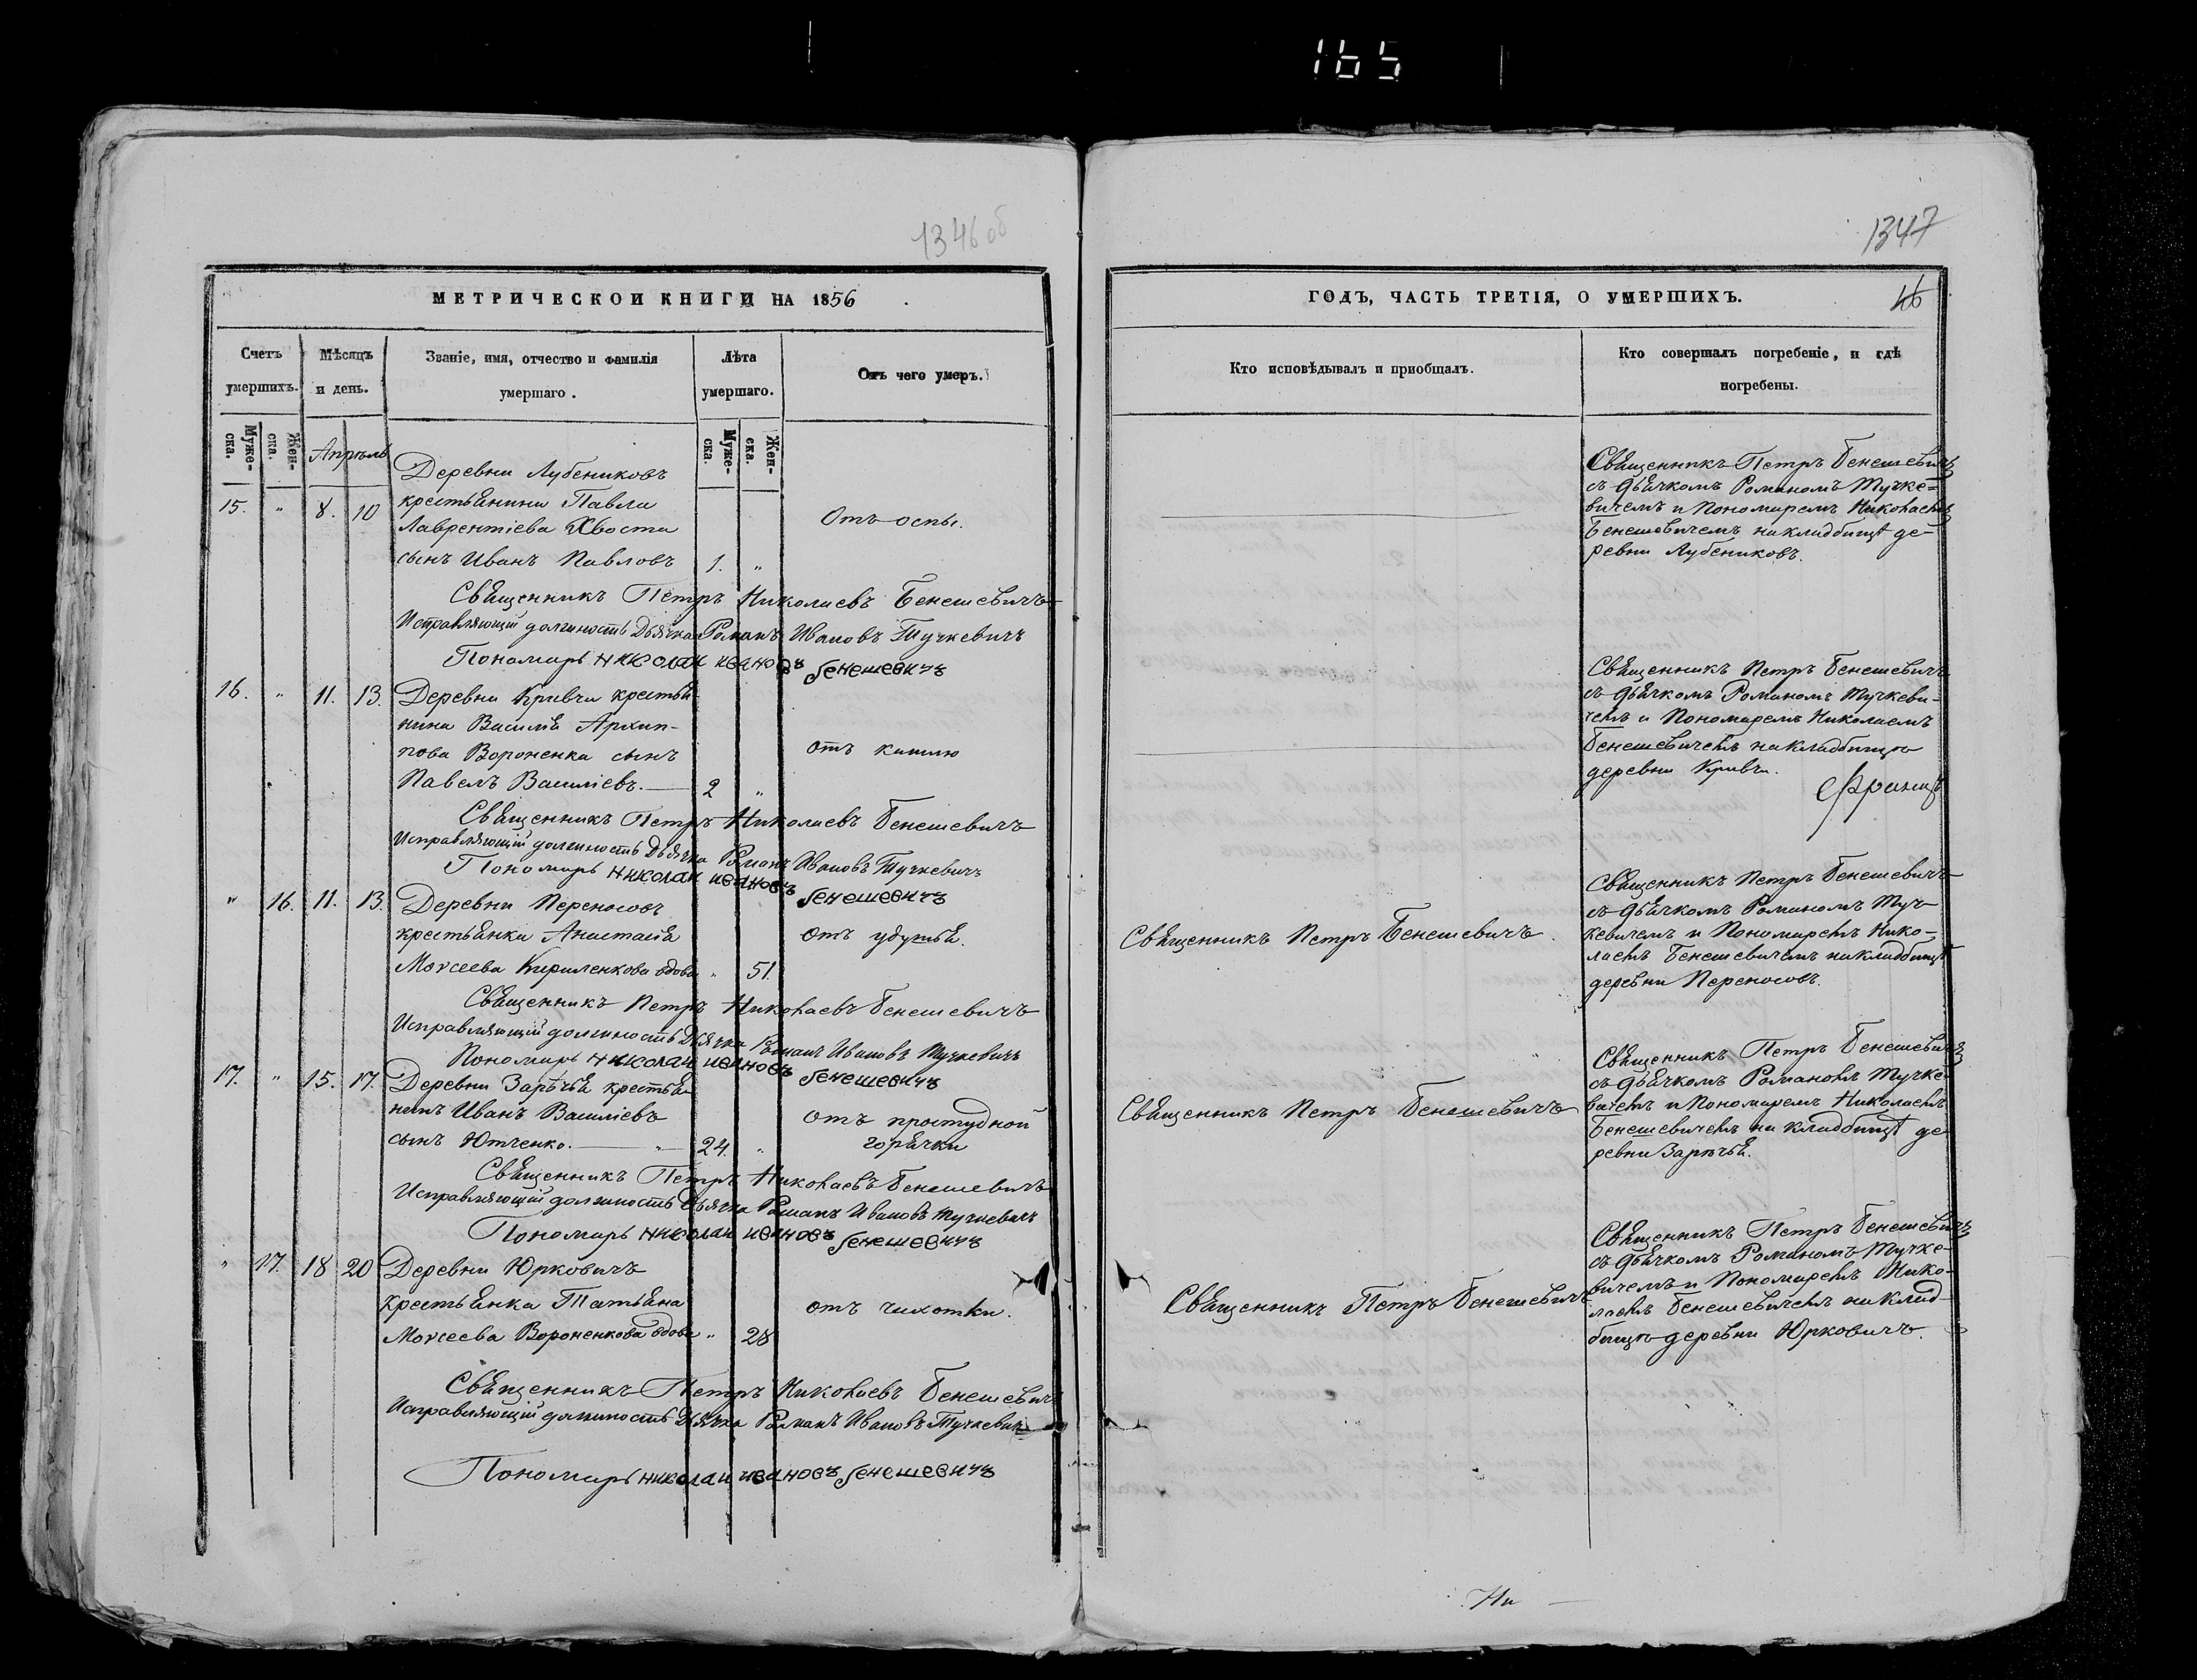 165
1346 об
1347
МЕТРИЧЕСКОЙ КНИГИ НА 1856
ГОДЪ, ЧАСТЬ ТРЕТІЯ, О УМЕРШИХЪ.
46
Счетъ умершихъ.
Мѣсяцъ и день.
Званіе, имя, отчество и фамилія умершаго.
Лѣта умершаго.
Отъ чего умеръ.
Кто исповѣдывалъ и приобщалъ.
Кто совершалъ погребеніе, и гдѣ погребены.
Муже-ска.
Жен-ска.
Апрѣль
Муже-ска.
Жен-ска.
15. " 8. 10
Деревни Лубениковъ
крестьянина Павла
Лаврентіева Хвоста
сынъ Иванъ Павловъ 1. "
Отъ оспы.
Священникъ Петръ Бенешевичъ
съ дьячкомъ Романомъ Тучке-
вичемъ и Пономаремъ Николаемъ
Бенешевичемъ на кладбищѣ де-
ревни Лубениковъ.
Священникъ Петръ Николаевъ Бенешевичъ
Исправляющій должность Дьячка Романъ Ивановъ Тучкевичъ
Пономарь Николай Ивановъ Бенешевичъ
16. " 11. 13.
Деревни Кривчи крестья-
нина Василія Архип-
пова Вороненка сынъ
Павелъ Василіевъ. 2 "
отъ кашлю
Священникъ Петръ Бенешевичъ
съ дьячкомъ Романомъ Тучкеви-
чемъ и Пономаремъ Николаемъ
Бенешевичемъ на кладбищѣ
деревни Кривчи.
Священникъ Петръ Николаевъ Бенешевичъ
Исправляющій должность Дьячка Романъ Ивановъ Тучкевичъ
Пономарь Николай Ивановъ Бенешевичъ
" 16. 11. 13.
Деревни Переносовъ
крестьянка Анастасія
Моисеева Кириленкова вдова " 51.
отъ удушья.
Священникъ Петръ Бенешевичъ.
Священникъ Петръ Бенешевичъ
съ дьячкомъ Романомъ Туч-
кевичемъ и Пономаремъ Нико-
лаемъ Бенешевичемъ на кладбищѣ
деревни Переносовъ.
Священникъ Петръ Николаевъ Бенешевичъ
Исправляющій должность Дьячка Романъ Ивановъ Тучкевичъ
Пономарь Николай Ивановъ Бенешевичъ
17. " 15. 17.
Деревни Зарѣчья крестья-
нинъ Иванъ Василіевъ
сынъ Ютченко. 24. "
отъ простудной
горячки
Священникъ Петръ Бенешевичъ
Священникъ Петръ Бенешевичъ
съ дьячкомъ Романомъ Тучке-
вичемъ и Пономаремъ Николаемъ
Бенешевичемъ на кладбищѣ де-
ревни Зарѣчья.
Священникъ Петръ Николаевъ Бенешевичъ
Исправляющій должность Дьячка Романъ Ивановъ Тучкевичъ
Пономарь Николай Ивановъ Бенешевичъ
" 17. 18 20
Деревни Юрковичъ
крестьянка Татьяна
Моисеева Вороненкова вдова " 28
отъ чихотки.
Священникъ Петръ Бенешевичъ
Священникъ Петръ Бенешевичъ
съ дьячкомъ Романомъ Тучке-
вичемъ и Пономаремъ Нико-
лаемъ Бенешевичемъ на клад-
бищѣ деревни Юрковичъ.
Священникъ Петръ Николаевъ Бенешевичъ
Исправляющій должность Дьячка Романъ Ивановъ Тучкевичъ
Пономарь Николай Ивановъ Бенешевичъ